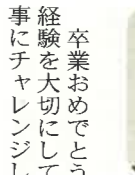 卒業おめでとう
経験を大切にして
事にチャレンジし